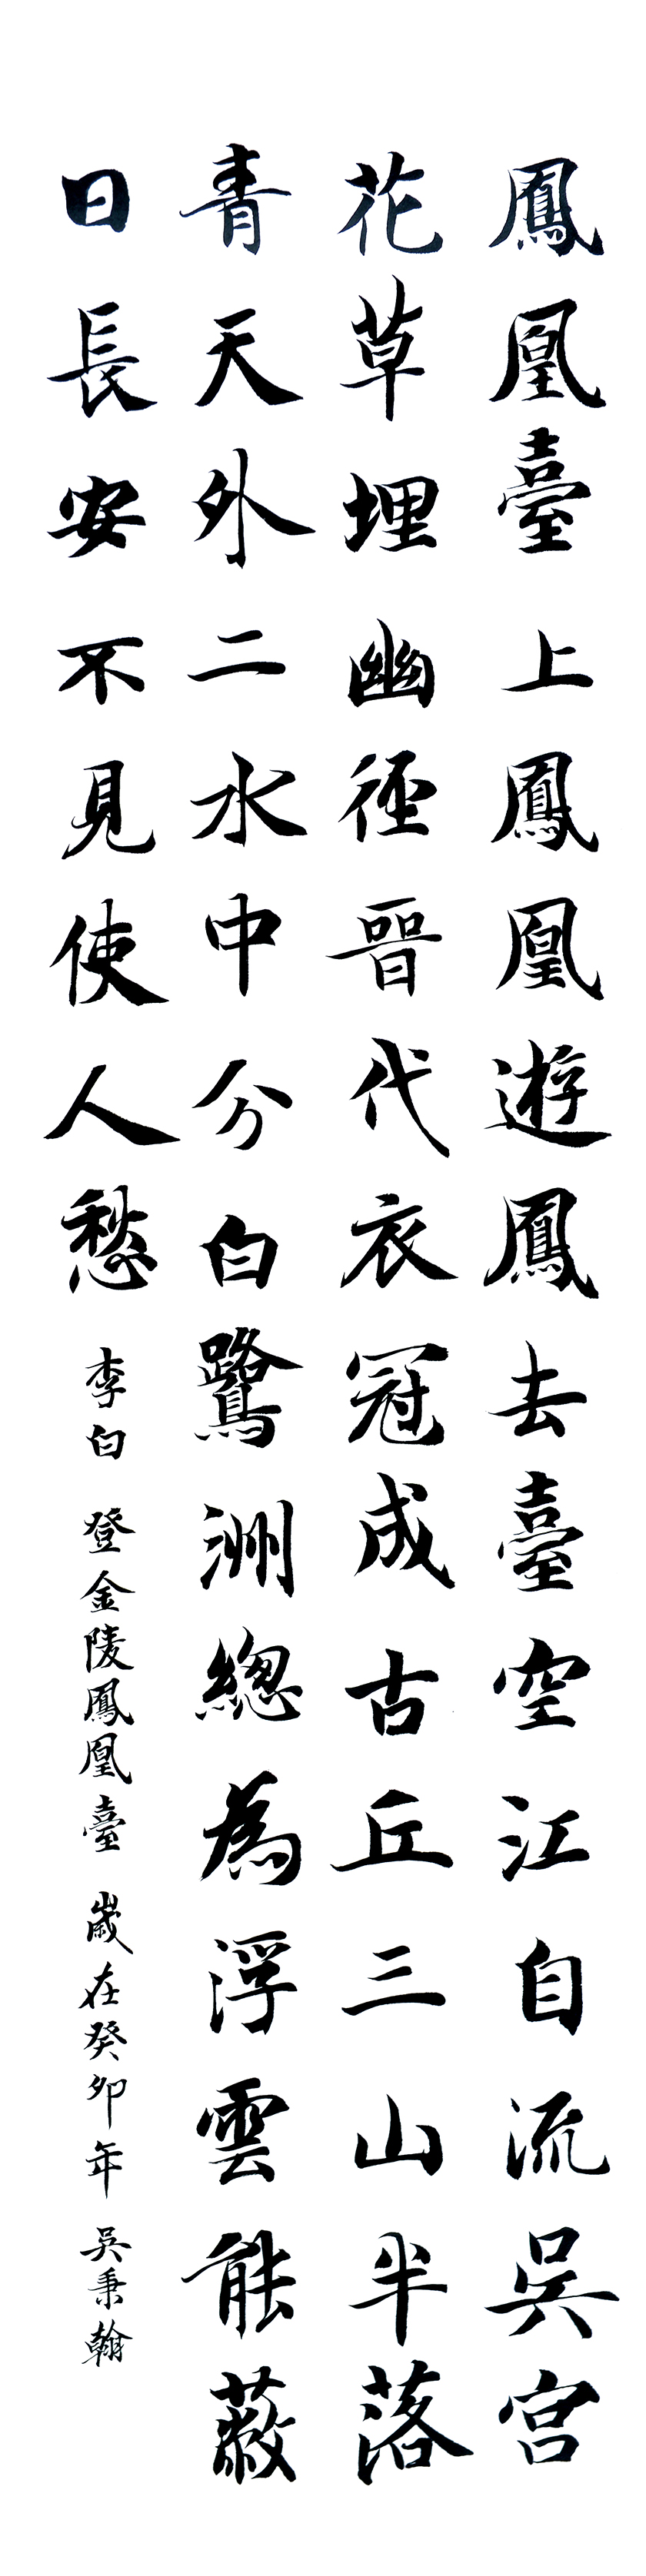 鳳凰臺上鳳凰遊鳳去臺空江自流吳宮
花草埋幽徑晉代衣冠成古丘三山半落
青天外二水中分白鷺洲總為浮雲能蔽
日長安不見使人愁 李白 登金陵鳳凰臺 歲在癸卯年 吳秉翰